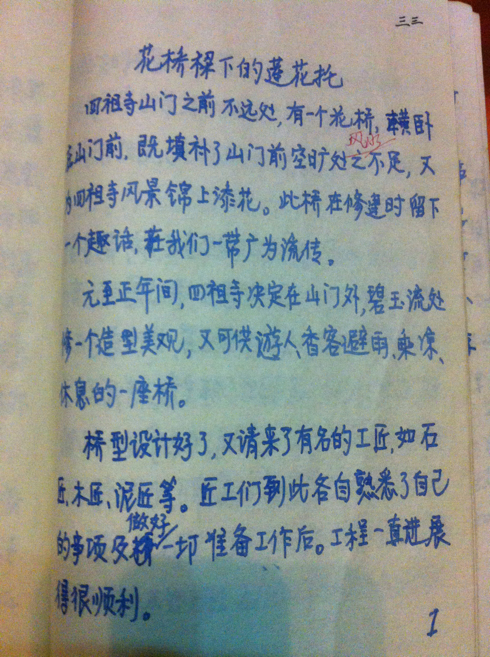 三三
花桥梁下的莲花托
四祖寺山门之前不远处，有一个花桥，横卧
在山门前，既填补了山门前空旷处之不足，又
风水
为四祖寺风景锦上添花。此桥在修造时留下
一个趣话，在我们一带广为流传。
元至正年间，四祖寺决定在山门外，碧玉流处
修一个造型美观，又可供游人、香客避雨、乘凉、
休息的一座桥。
桥型设计好了，又请来了有名的工匠，如石
匠、木匠、泥匠等。匠工们到此各自熟悉了自己
做好
的事项及一切准备工作后。工程一直进展
得很顺利。
1